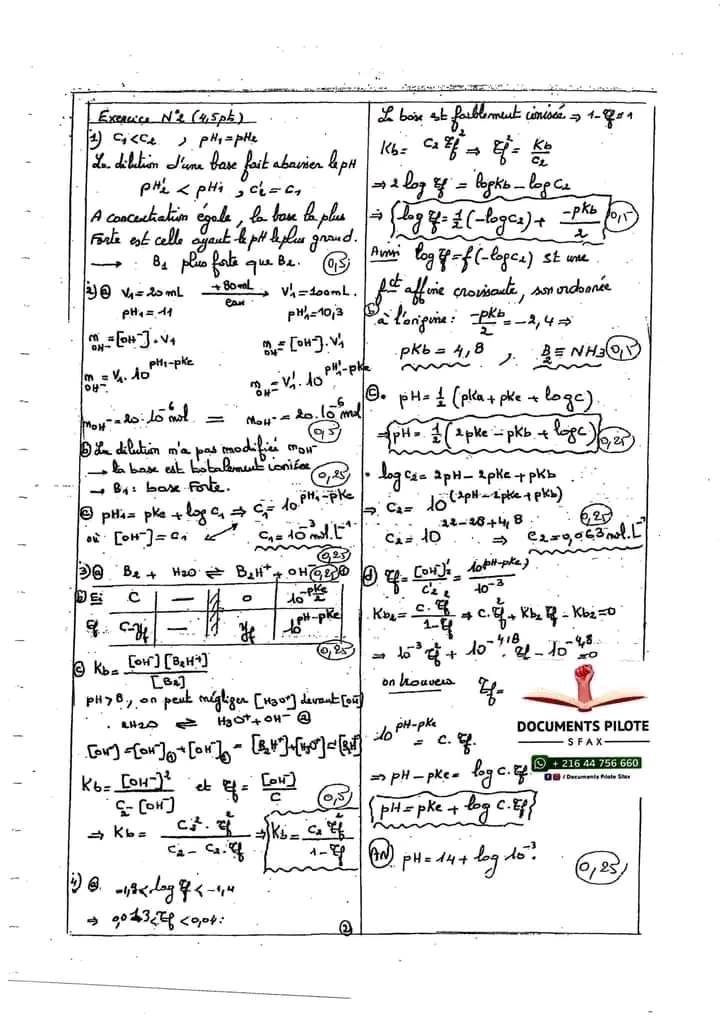 Exercice N°2 (4,5pts)
1) C₁<C₂ , pH₁=pH₂
La dilution d'une base fait abaisser le pH
pH'₂ < pH₁ , C'₂ = C₁
A concentration égale, la base la plus
Forte est celle ayant le pH le plus grand.
→ B₁ plus forte que B₂. 0,5
2) a V₁=20mL +80mL eau → V'₁=100mL.
pH₁=11 pH'₁=10,3
m OH⁻=[OH⁻].V₁ m OH⁻=[OH⁻].V'₁
m OH⁻=V₁.10^(pH₁-pKe) m OH⁻=V'₁.10^(pH'₁-pKe)
m OH⁻=20.10⁻⁶mol = m OH⁻=20.10⁻⁶mol
0,5
b) La dilution n'a pas modifié m OH⁻
→ la base est totalement ionisée 0,25
→ B₁: base Forte.
c) pH₁= pKe+log C₁ ⇒ C₁=10^(pH₁-pKe)
où [OH⁻]=C₁ C₁=10⁻³mol.L⁻¹
0,25
3) a B₂ + H₂O ⇌ B₂H⁺ + OH⁻ 0,25 ①
b) Ei C — 0 10^(-pKe/2)
Ef C-yf — yf 10^(pH-pKe)
0,25
c Kb=[OH⁻][B₂H⁺]/[B₂]
pH>8, on peut négliger [H₃O⁺] devant [OH⁻]
2H₂O ⇌ H₃O⁺+OH⁻ ②
[OH⁻]=[OH⁻]①+[OH⁻]② = [B₂H⁺]+[H₃O⁺]≃[B₂H⁺]
Kb=[OH⁻]²/(C₂-[OH⁻]) et τf=[OH⁻]/C 0,5
⇒ Kb= C₂².τf²/(C₂-C₂.τf) ⇒ Kb= C₂τf²/(1-τf)
4) a -1,8<log τf<-1,4
⇒ 0,013<τf<0,04:
②
La base est faiblement ionisée ⇒ 1-τf≃1
Kb= C₂τf² ⇒ τf²= Kb/C₂
⇒ 2logτf = logKb-logC₂
⇒ logτf=½(-logC₂)+ -pKb/2 0,5
Ainsi logτf=f(-logC₂) est une
fct affine croissante, son ordonnée
b à l'origine: -pKb/2=-2,4 ⇒
pKb=4,8 , B₂≡NH₃ 0,5
c. pH=½(pKa+pKe+logC)
⇒ pH=½(2pKe-pKb+logC) 0,25
• logC₂=2pH-2pKe+pKb
⇒ C₂=10^(2pH-2pKe+pKb)
0,25
C₂=10^(22-28+4,8) ⇒ C₂=0,063mol.L⁻¹
d τf=[OH⁻]'/C'₂=10^(pH-pKe)/10⁻³
Kb₂=C.τf²/(1-τf) ⇒ C.τf²+Kb₂τf-Kb₂=0
⇒ 10⁻³τf²+10^(-4,8).τf-10^(-4,8)=0
on trouvera τf=
10^(pH-pKe)=C.τf.
⇒ pH-pKe=logC.τf
pH=pKe+logC.τf
AN pH=14+log10⁻³.
0,25
DOCUMENTS PILOTE
SFAX
+ 216 44 756 660
/ Documents Pilote Sfax